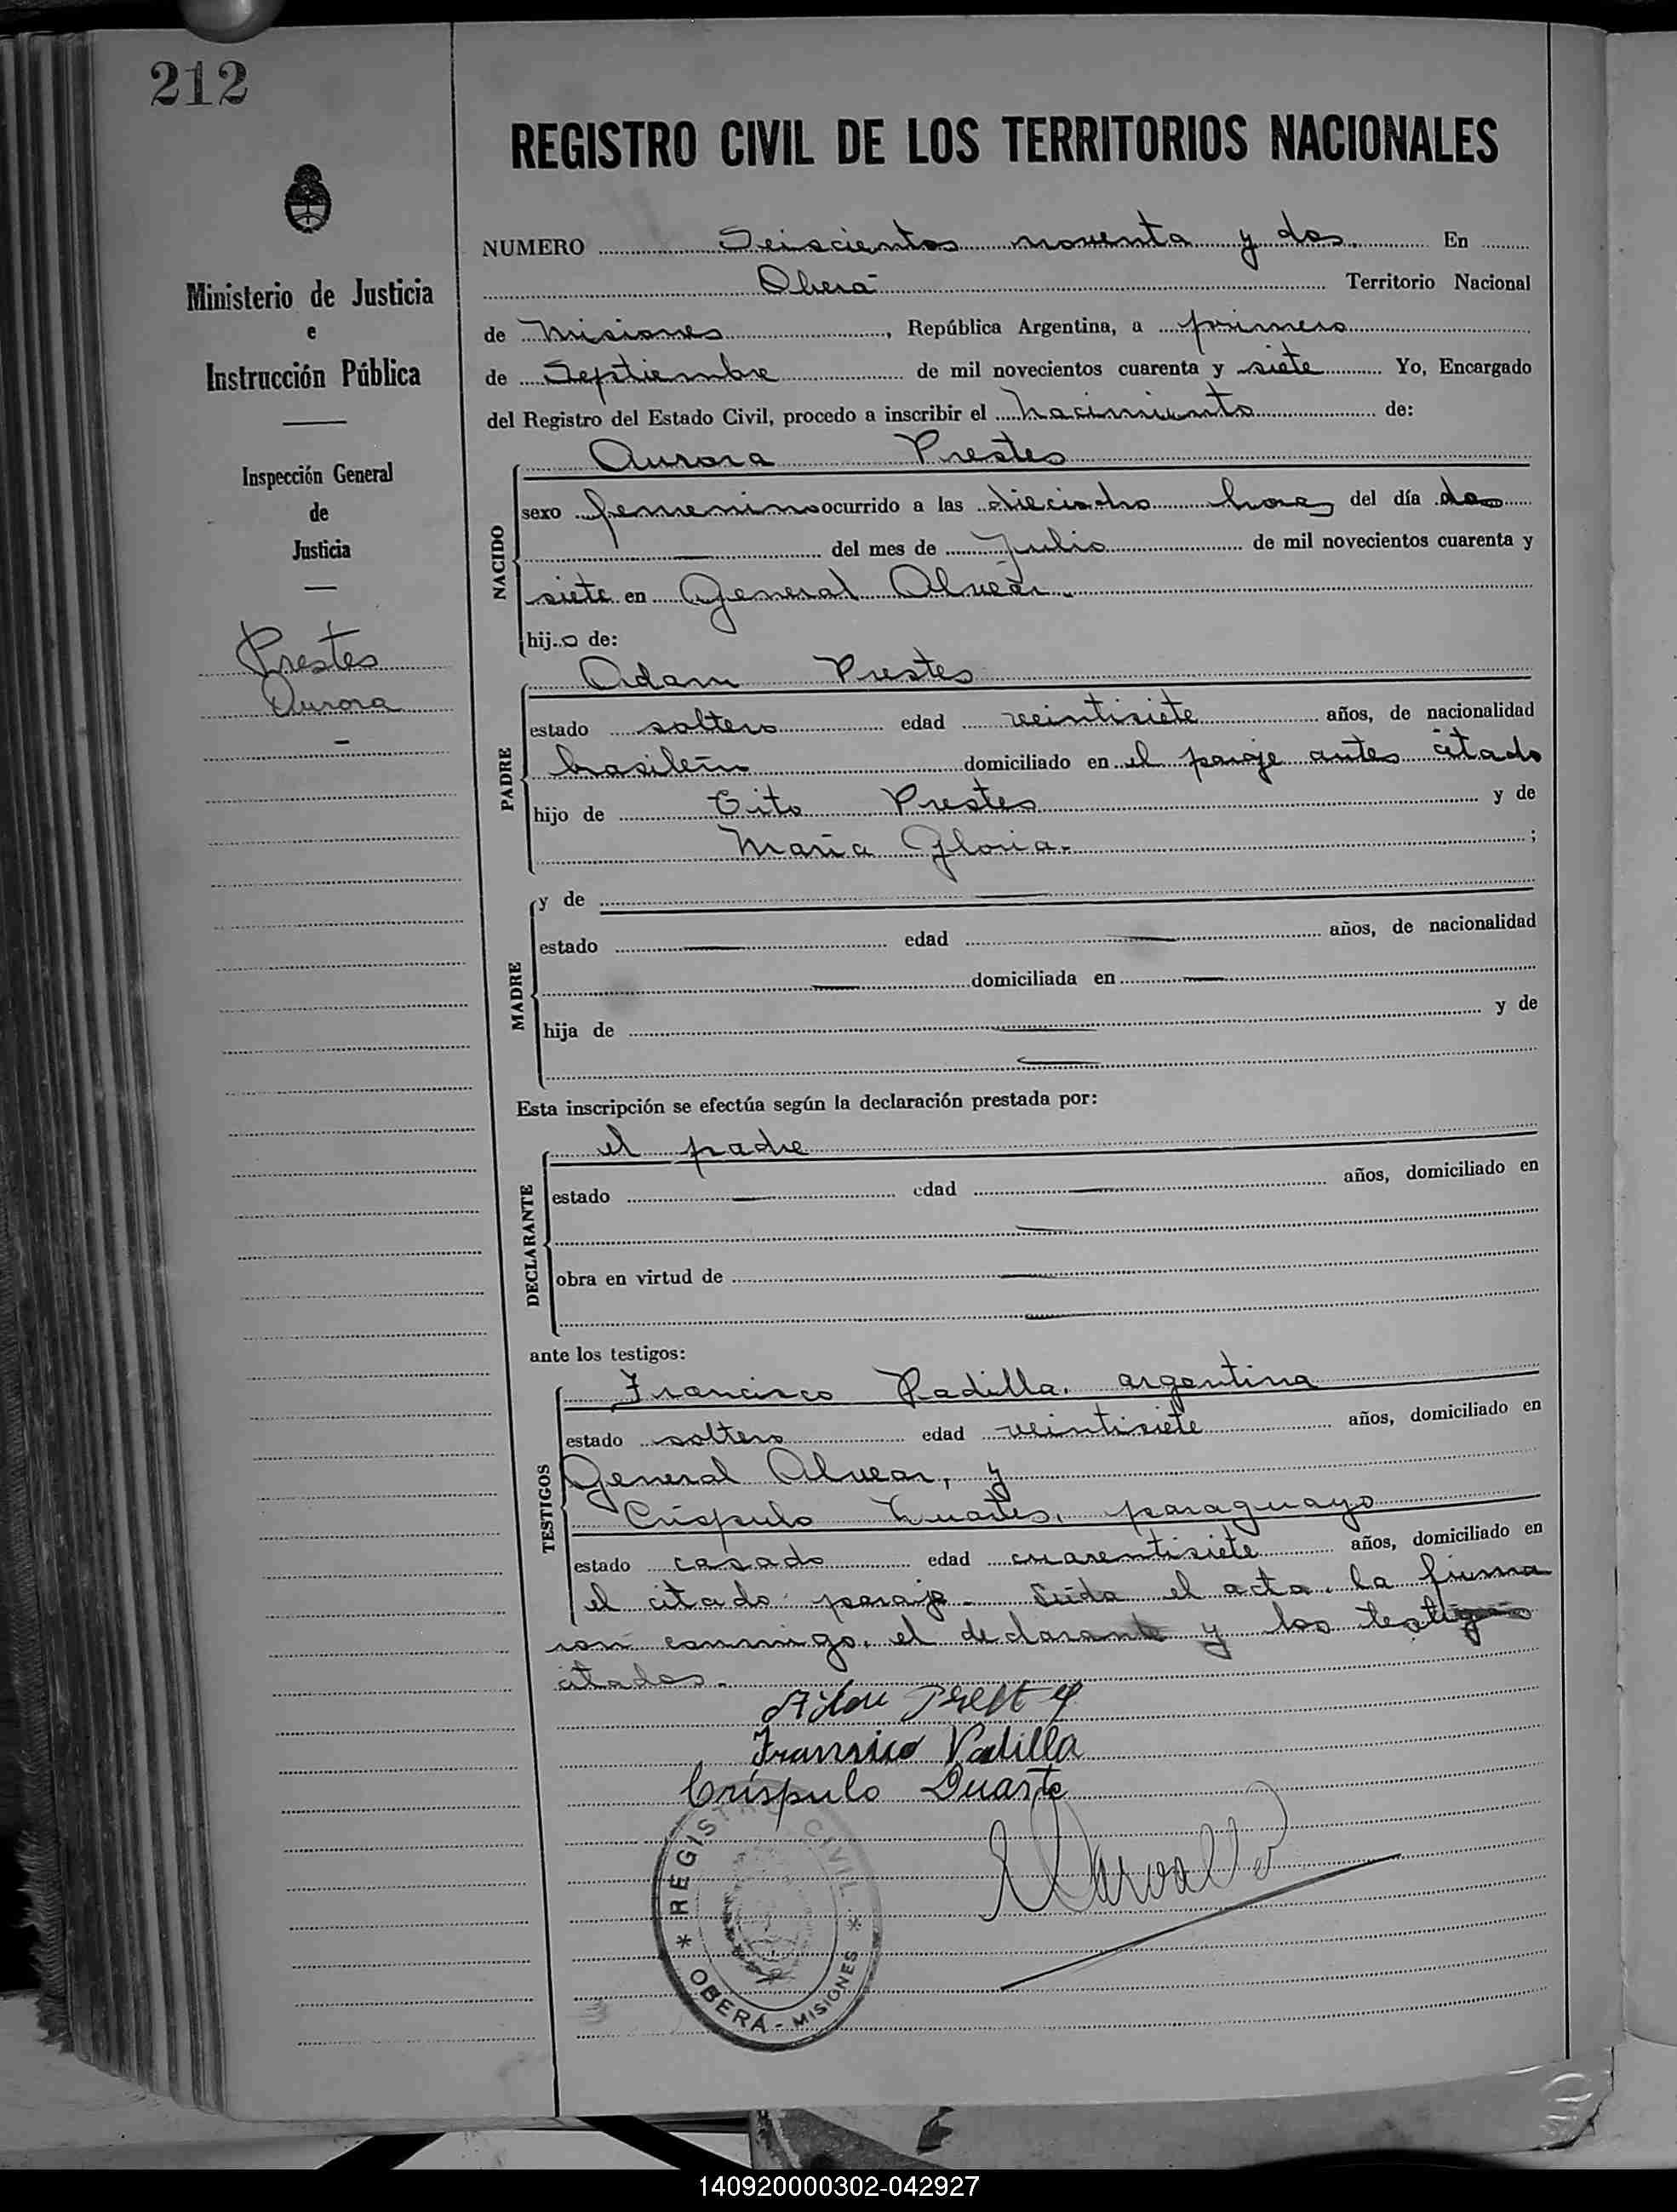 212
REGISTRO CIVIL DE LOS TERRITORIOS NACIONALES
Ministerio de Justicia
e
Instrucción Pública
Inspección General
de
Justicia
Prestes
Aurora
NUMERO Seiscientos noventa y dos. En
Oberá Territorio Nacional
de Misiones, República Argentina, a primero
de Septiembre de mil novecientos cuarenta y siete Yo, Encargado
del Registro del Estado Civil, procedo a inscribir el Nacimiento de:
NACIDO
Aurora Prestes
sexo femenino ocurrido a las dieciocho horas del día dos
del mes de Julio de mil novecientos cuarenta y
siete en General Alvear.
hija de:
PADRE
Adam Prestes
estado soltero edad veintisiete años, de nacionalidad
brasileño domiciliado en el paraje antes citado
hijo de Tito Prestes y de
María Gloria. ;
MADRE
y de
estado edad años, de nacionalidad
domiciliada en
hija de y de
Esta inscripción se efectúa según la declaración prestada por:
DECLARANTE
el padre
estado edad años, domiciliado en
obra en virtud de
ante los testigos:
TESTIGOS
Francisco Padilla, argentina
estado soltero edad veintisiete años, domiciliado en
General Alvear, y
Críspulo paraguayo
estado casado edad cuarentisiete años, domiciliado en
el citado paraje. Leída el acta, la firma
ron conmigo, el declarante y los testigos
citados.
Francisco Padilla
Críspulo Duarte
REGISTRO CIVIL
* OBERÁ - MISIONES *
140920000302-042927